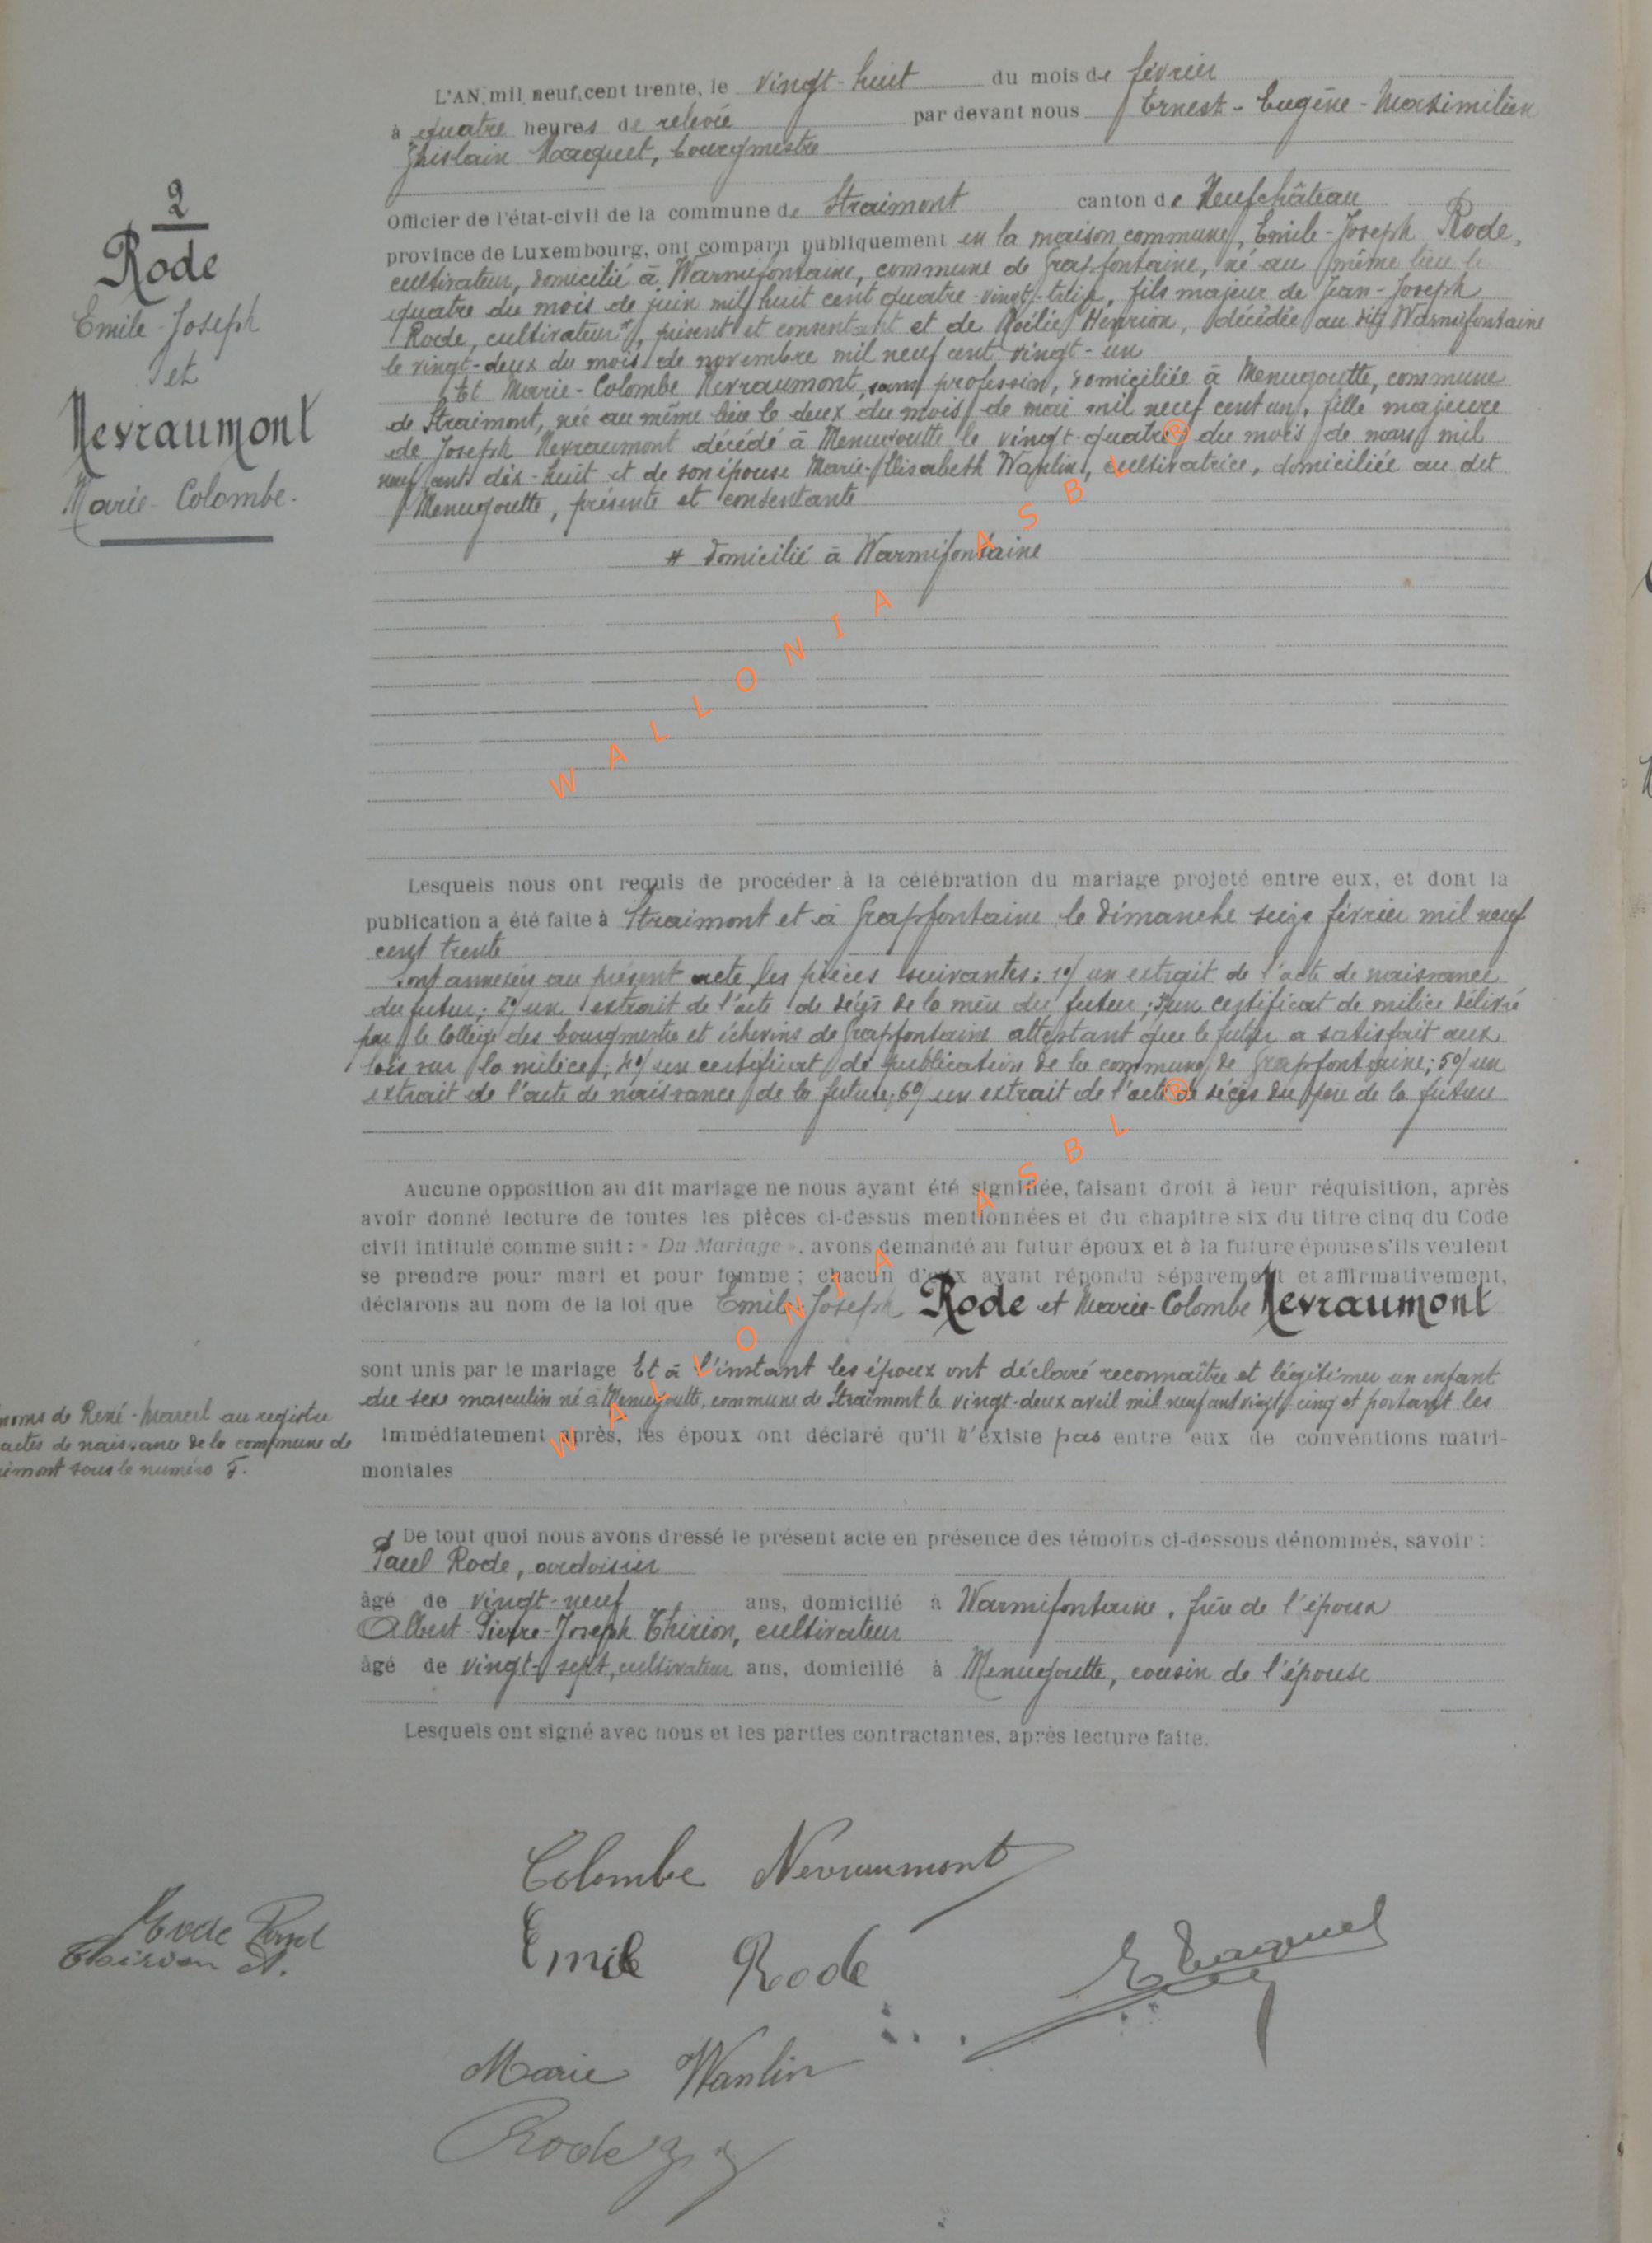 2
Rode
Emile-Joseph
et
Nevraumont
Marie-Colombe.
L'AN mil neuf cent trente, le vingt-huit du mois de février
à quatre heures de relevée par devant nous Ernest-Eugène-Maximilien
Ghislain Macquet, bourgmestre
Officier de l'état-civil de la commune de Straimont canton de Neufchâteau
province de Luxembourg, ont comparu publiquement en la maison commune, Emile-Joseph Rode,
cultivateur, domicilié à Warmifontaine, commune de Grapfontaine, né au même lieu le
quatre du mois de juin mil huit cent quatre-vingt-treize, fils majeur de Jean-Joseph
Rode, cultivateur #, présent et consentant et de Noélie Henrion, décédée au dit Warmifontaine
le vingt-deux du mois de novembre mil neuf cent vingt-un
Et Marie-Colombe Nevraumont, sans profession, domiciliée à Menugoutte, commune
de Straimont, née au même lieu le deux du mois de mai mil neuf cent un, fille majeure
de Joseph Nevraumont décédé à Menugoutte le vingt-quatre du mois de mars mil
neuf cent dix-huit et de son épouse Marie-Elisabeth Wanlin, cultivatrice, domiciliée au dit
Menugoutte, présente et consentante
# domicilié à Warmifontaine
Lesquels nous ont requis de procéder à la célébration du mariage projeté entre eux, et dont la
publication a été faite à Straimont et à Grapfontaine le dimanche seize février mil neuf
cent trente
Sont annexées au présent acte les pièces suivantes: 1º/ un extrait de l'acte de naissance
du futur; 2º/ un extrait de l'acte de décès de la mère du futur; 3º/ un certificat de milice délivré
par le Collège des bourgmestre et échevins de Grapfontaine attestant que le futur a satisfait aux
lois sur la milice; 4º/ un certificat de publication de la commune de Grapfontaine; 5º/ un
extrait de l'acte de naissance de la future; 6º/ un extrait de l'acte de décès du père de la future
Aucune opposition au dit mariage ne nous ayant été signifiée, faisant droit à leur réquisition, après
avoir donné lecture de toutes les pièces ci-dessus mentionnées et du chapitre six du titre cinq du Code
civil intitulé comme suit: « Du Mariage », avons demandé au futur époux et à la future épouse s'ils veulent
se prendre pour mari et pour femme; chacun d'eux ayant répondu séparement et affirmativement,
déclarons au nom de la loi que Emile-Joseph Rode et Marie-Colombe Nevraumont
sont unis par le mariage Et à l'instant les époux ont déclaré reconnaître et légitimer un enfant
du sexe masculin né à Menugoutte, commune de Straimont le vingt-deux avril mil neuf cent vingt-cinq et portant les
noms de René-Marcel au registre
actes de naissance de la commune de
imont sous le numéro 5.
Immédiatement après, les époux ont déclaré qu'il n'existe pas entre eux de conventions matri-
moniales
De tout quoi nous avons dressé le présent acte en présence des témoins ci-dessous dénommés, savoir:
Paul Rode, ardoisier
âgé de vingt-neuf ans, domicilié à Warmifontaine, frère de l'époux
Albert-Pierre-Joseph Thirion, cultivateur
âgé de vingt-sept, cultivateur ans, domicilié à Menugoutte, cousin de l'épouse
Lesquels ont signé avec nous et les parties contractantes, après lecture faite.
Colombe Nevraumont
Rode Paul
Thirion A.
Emile Rode
E Macquet
Marie Wanlin
Rode
WALLONIA ASBL ®
WALLONIA ASBL ®